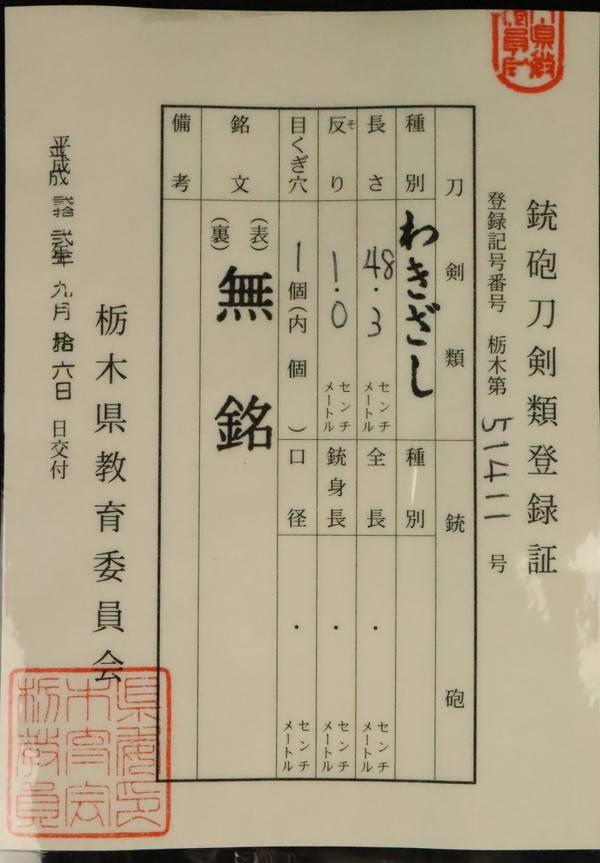 銃砲刀剣類登録証
登録記号番号 栃木第 51411 号
刀剣類 銃砲
種別 わきざし 種別
長さ 48.3 センチメートル 全長 ・ センチメートル
反り そ 1.0 センチメートル 銃身長 ・ センチメートル
目くぎ穴 1個(内 個) 口径 ・ センチメートル
銘文 (表) (裏) 無銘
備考
栃木県教育委員会
平成 拾 年 九月 拾六日 日交付